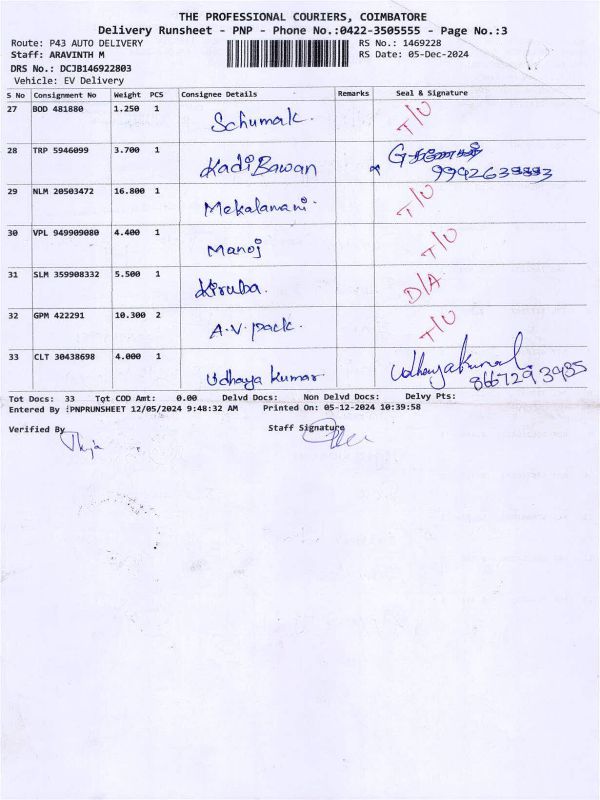 THE PROFESSIONAL COURIERS, COIMBATORE
Delivery Runsheet - PNP - Phone No.:0422-3505555 - Page No.:3
Route: P43 AUTO DELIVERY RS No.: 1469228
Staff: ARAVINTH M RS Date: 05-Dec-2024
DRS No.: DCJB146922803
Vehicle: EV Delivery
S No Consignment No Weight PCS Consignee Details Remarks Seal & Signature
27 BOD 481880 1.250 1 Schumak. T/U
28 TRP 5946099 3.700 1 Kadi Bawan
29 NLM 20503472 16.800 1 Mekalamani. T/U
30 VPL 949909080 4.400 1 Manoj T/U
31 SLM 359908332 5.500 1 Kiruba. D/A
32 GPM 422291 10.300 2 A.V. pack. T/U
33 CLT 30438698 4.000 1 Udhaya Kumar Udhayakumar 8667293985
Tot Docs: 33 Tot COD Amt: 0.00 Delvd Docs: Non Delvd Docs: Delvy Pts:
Entered By :PNPRUNSHEET 12/05/2024 9:48:32 AM Printed On: 05-12-2024 10:39:58
Verified By Staff Signature